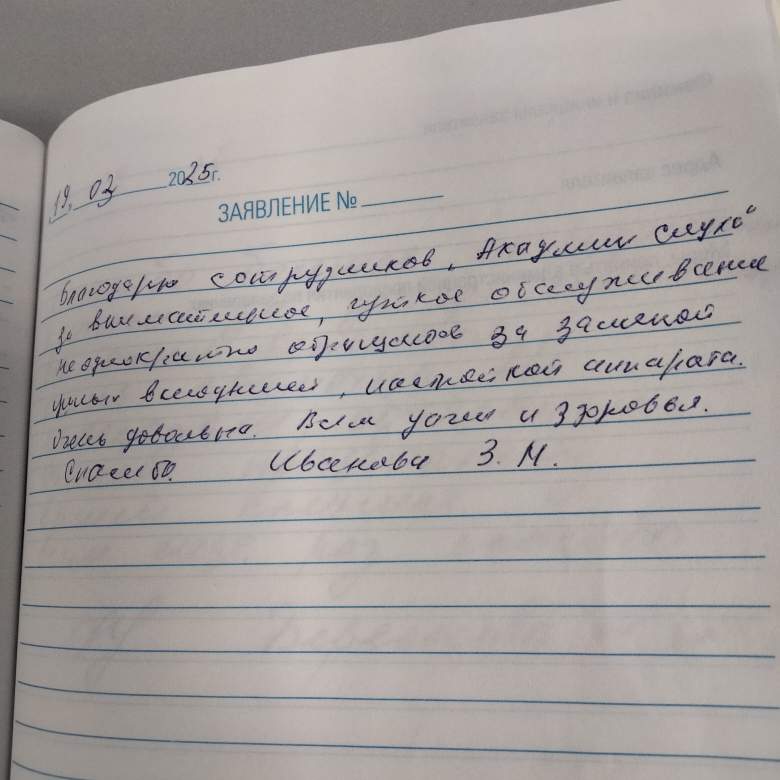 19. 03 2025г.
ЗАЯВЛЕНИЕ №
Благодарю сотрудников „Академии слуха“
за внимательное, чуткое обслуживание
неоднократно обращалась за заменой
ушных вкладышей, настройкой аппарата.
Очень довольна. Всем удачи и здоровья.
Спасибо. Иванова З. М.